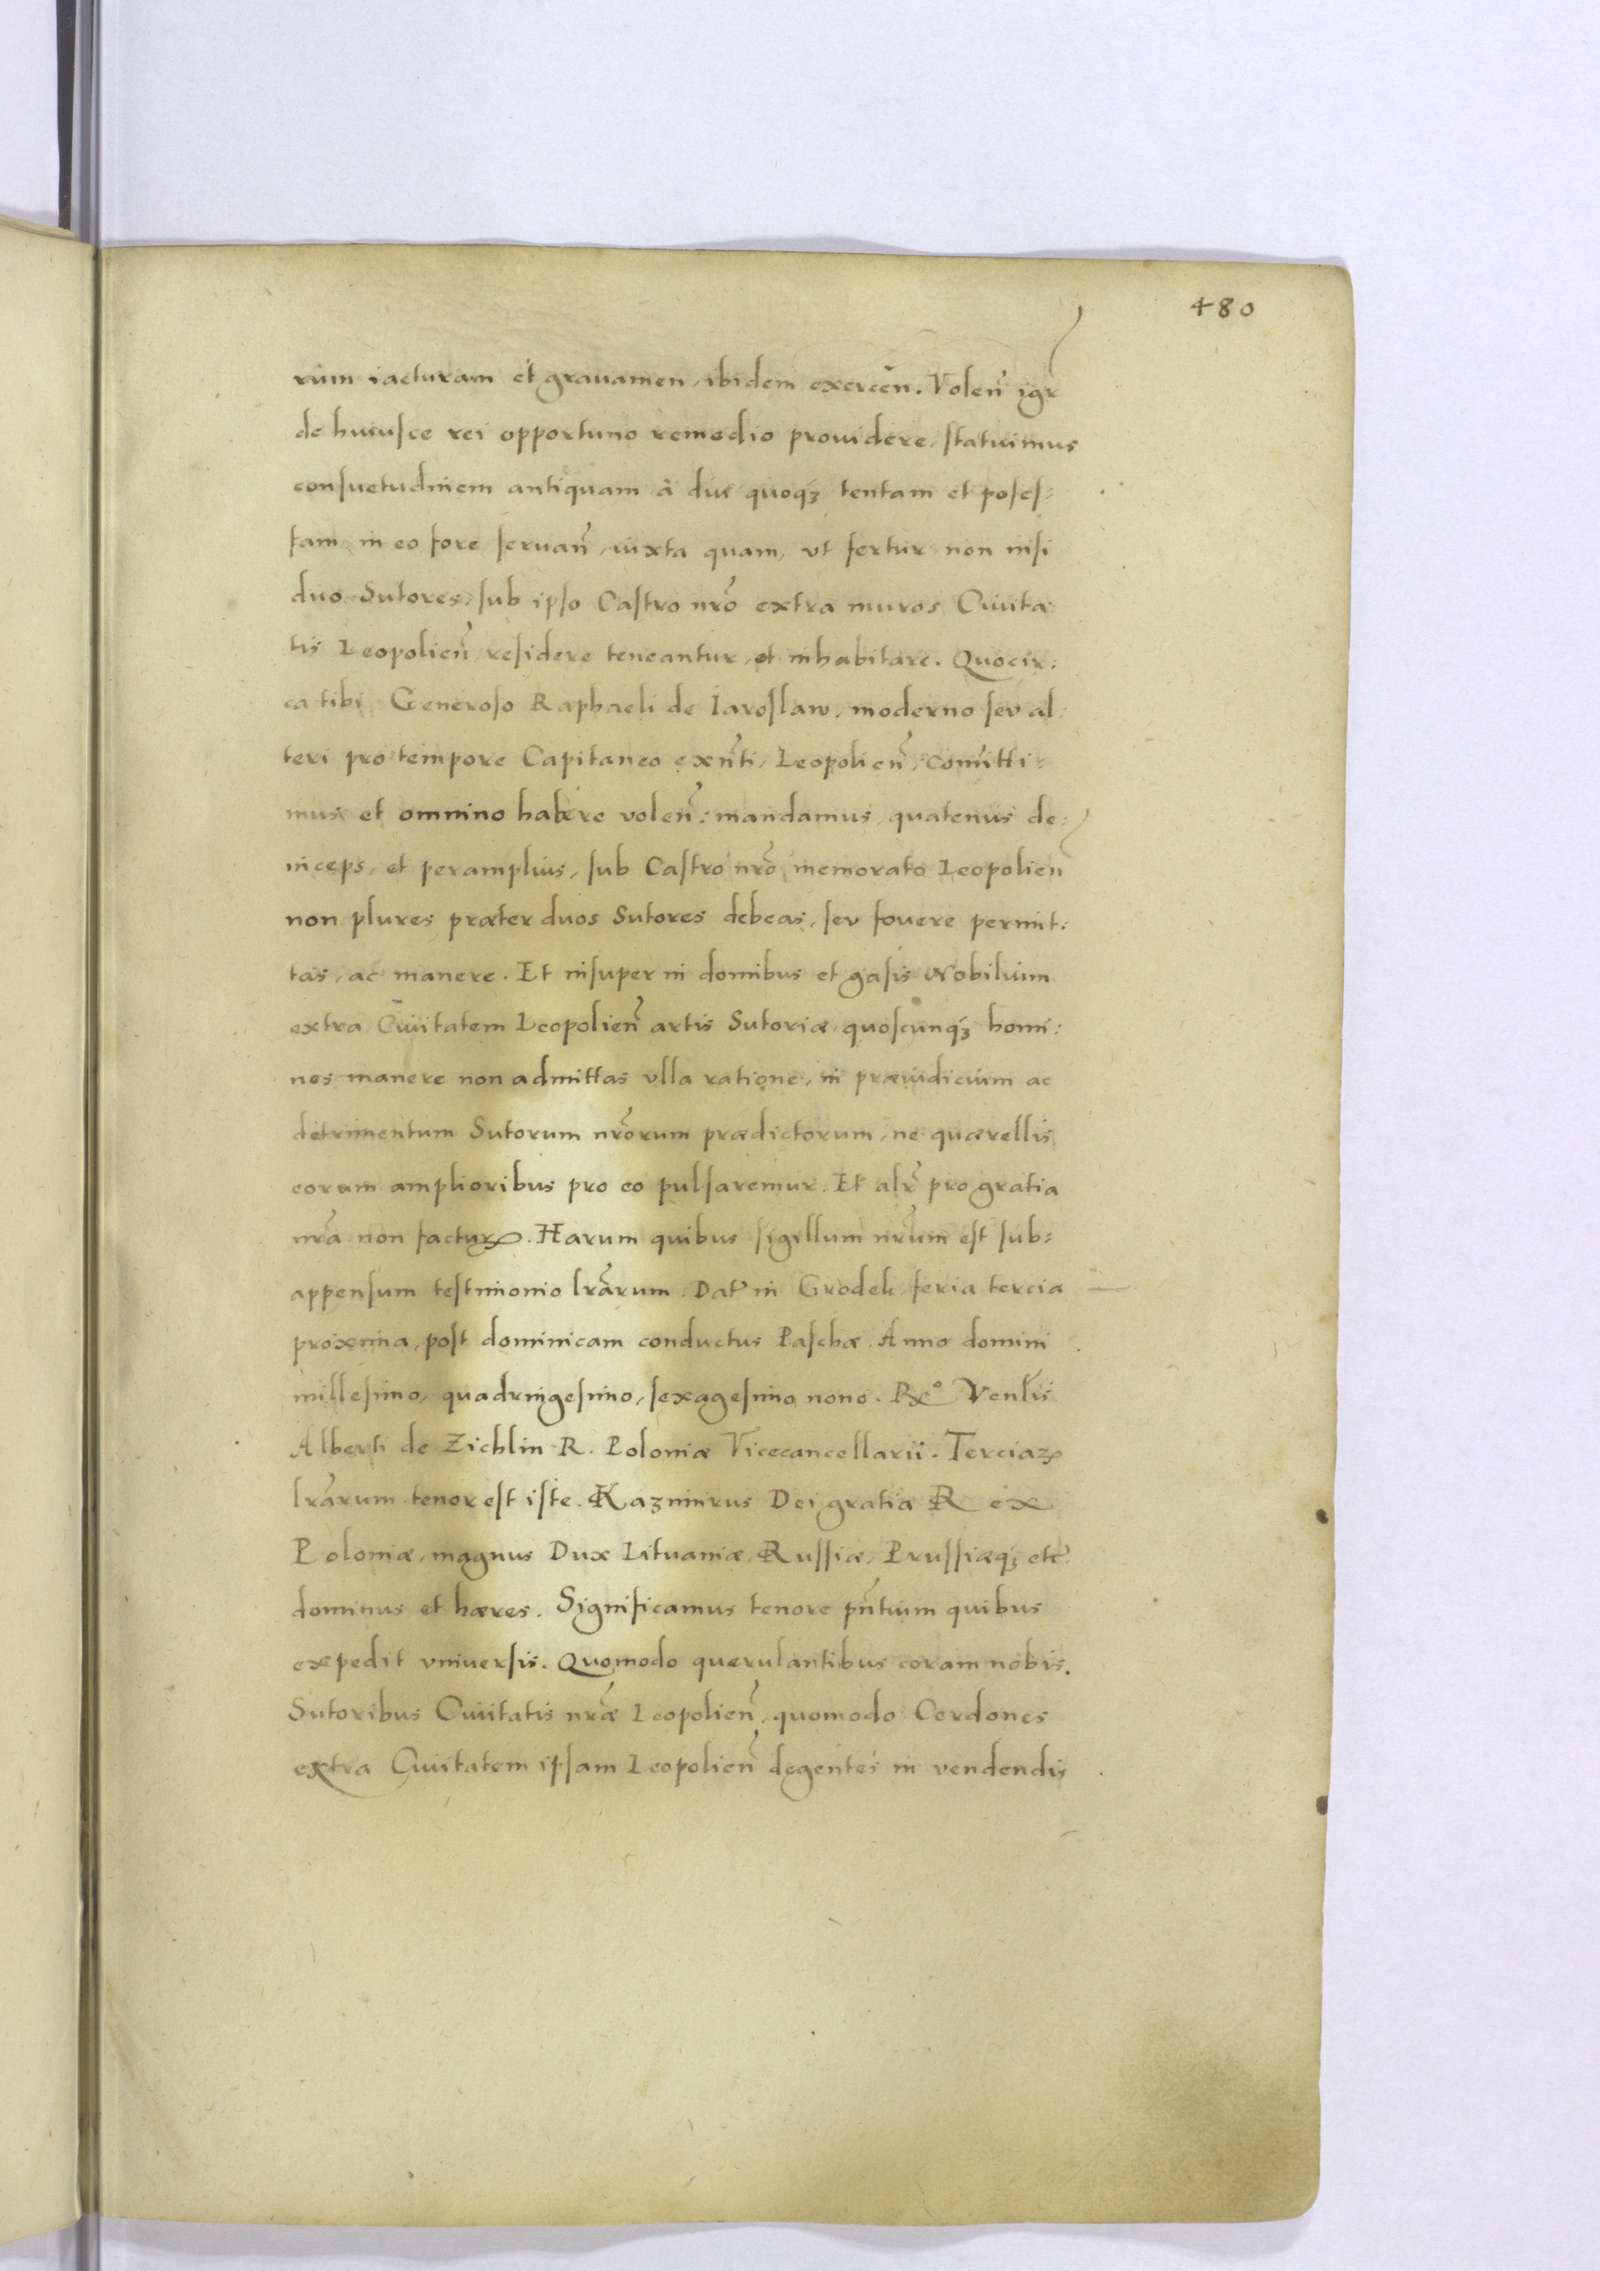 480
rum iacturam et grauamen, ibidem exercen̄. Volen̄ igr̄
de huiusce rei opportuno remedio prouidere, statuimus
consuetudinem antiquam à diu quoq₃ tentam et poses-
sam in eo fore seruan̄, iuxta quam, vt fertur non nisi
duo Sutores, sub ipso Castro nr̄o extra muros Ciuita:
tis Leopolien̄ residere teneantur, et inhabitare. Quocir:
ca tibi Generoso Raphaeli de Iaroslaw, moderno sev al:
teri pro tempore Capitaneo exn̄ti, Leopolien̄, com̄itti:
mus et omnino habere volen̄: mandamus, quatenus de:
inceps, et peramplius, sub Castro nr̄o memorato Leopolien
non plures præter duos Sutores debeas, sev fouere permit:
tas, ac manere. Et insuper in domibus et gasis Nobilium
extra Ciuitatem Leopolien̄ artis Sutoriæ, quoscunq₃ homi:
nes manere non admittas vlla ratione, in præiudicium ac
detrimentum Sutorum nr̄orum prædictorum, ne quærellis
eorum amplioribus pro eo pulsaremur. Et alr̄ pro gratia
nr̄a non facturꝭ. Harum quibus sigillum nr̄um est sub-
appensum testimonio lr̄arum. Dat̄ in Grodek feria tercia
proxima, post dominicam conductus Paschæ. Anno domini
millesimo, quadringesimo, sexagesimo nono. Rᵒ Venlis
Alberti de Zichlin R. Poloniæ Vicecancellarii. Terciaꝝ
lr̄arum tenor est iste. Kazimirus Dei gratia Rex
Poloniæ, magnus Dux Lituaniæ, Russiæ, Prussiæq₃ etc̄
dominus et hæres. Significamus tenore pn̄tium quibus
expedit vniuersis. Quomodo querulantibus coram nobis.
Sutoribus Ciuitatis nr̄æ Leopolien̄, quomodo Cerdones
extra Ciuitatem ipsam Leopolien̄ degentes in vendendis